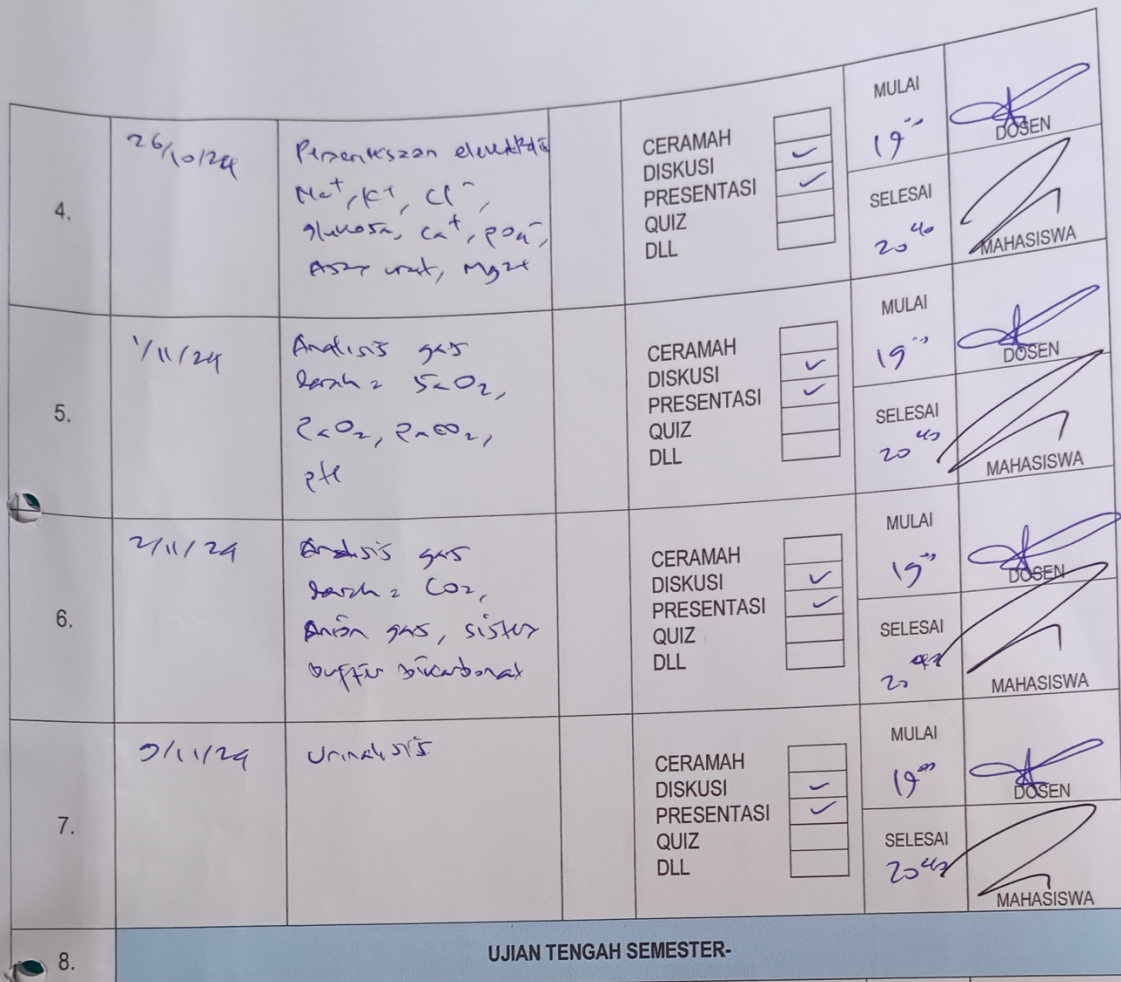 4.
26/10/24
Pemeriksaan elektrolit
Na+, K+, Cl-,
glukosa, Ca+, PO4-,
Asam urat, Mg2+
CERAMAH
DISKUSI ✓
PRESENTASI ✓
QUIZ
DLL
MULAI
19.00
SELESAI
20.40
DOSEN
MAHASISWA
5.
1/11/24
Analisis gas
darah = SaO2,
PaO2, PaCO2,
pH
CERAMAH
DISKUSI ✓
PRESENTASI ✓
QUIZ
DLL
MULAI
19.00
SELESAI
20.40
DOSEN
MAHASISWA
6.
2/11/24
Analisis gas
darah = CO2,
Anion gas, sistem
buffer bikarbonat
CERAMAH
DISKUSI ✓
PRESENTASI ✓
QUIZ
DLL
MULAI
19.00
SELESAI
20.40
DOSEN
MAHASISWA
7.
9/11/24
Urinalisis
CERAMAH
DISKUSI ✓
PRESENTASI ✓
QUIZ
DLL
MULAI
19.00
SELESAI
20.40
DOSEN
MAHASISWA
8.
UJIAN TENGAH SEMESTER-